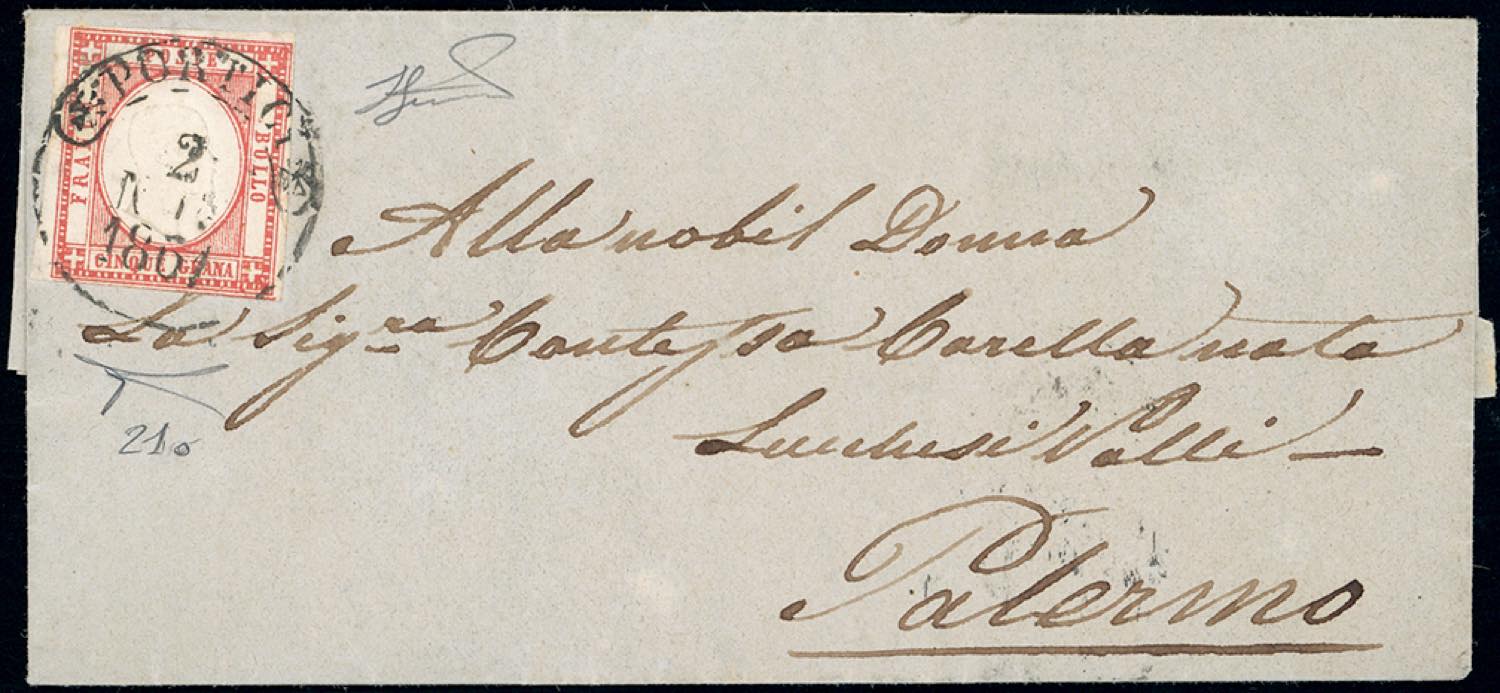 POSTE
PORTICI
FRA BOLLO
2
1861
CINQUE GRANA
Alla nobil Donna
La Sig.ra Contessa Carella nata
Lucchesi Palli
Palermo
21o